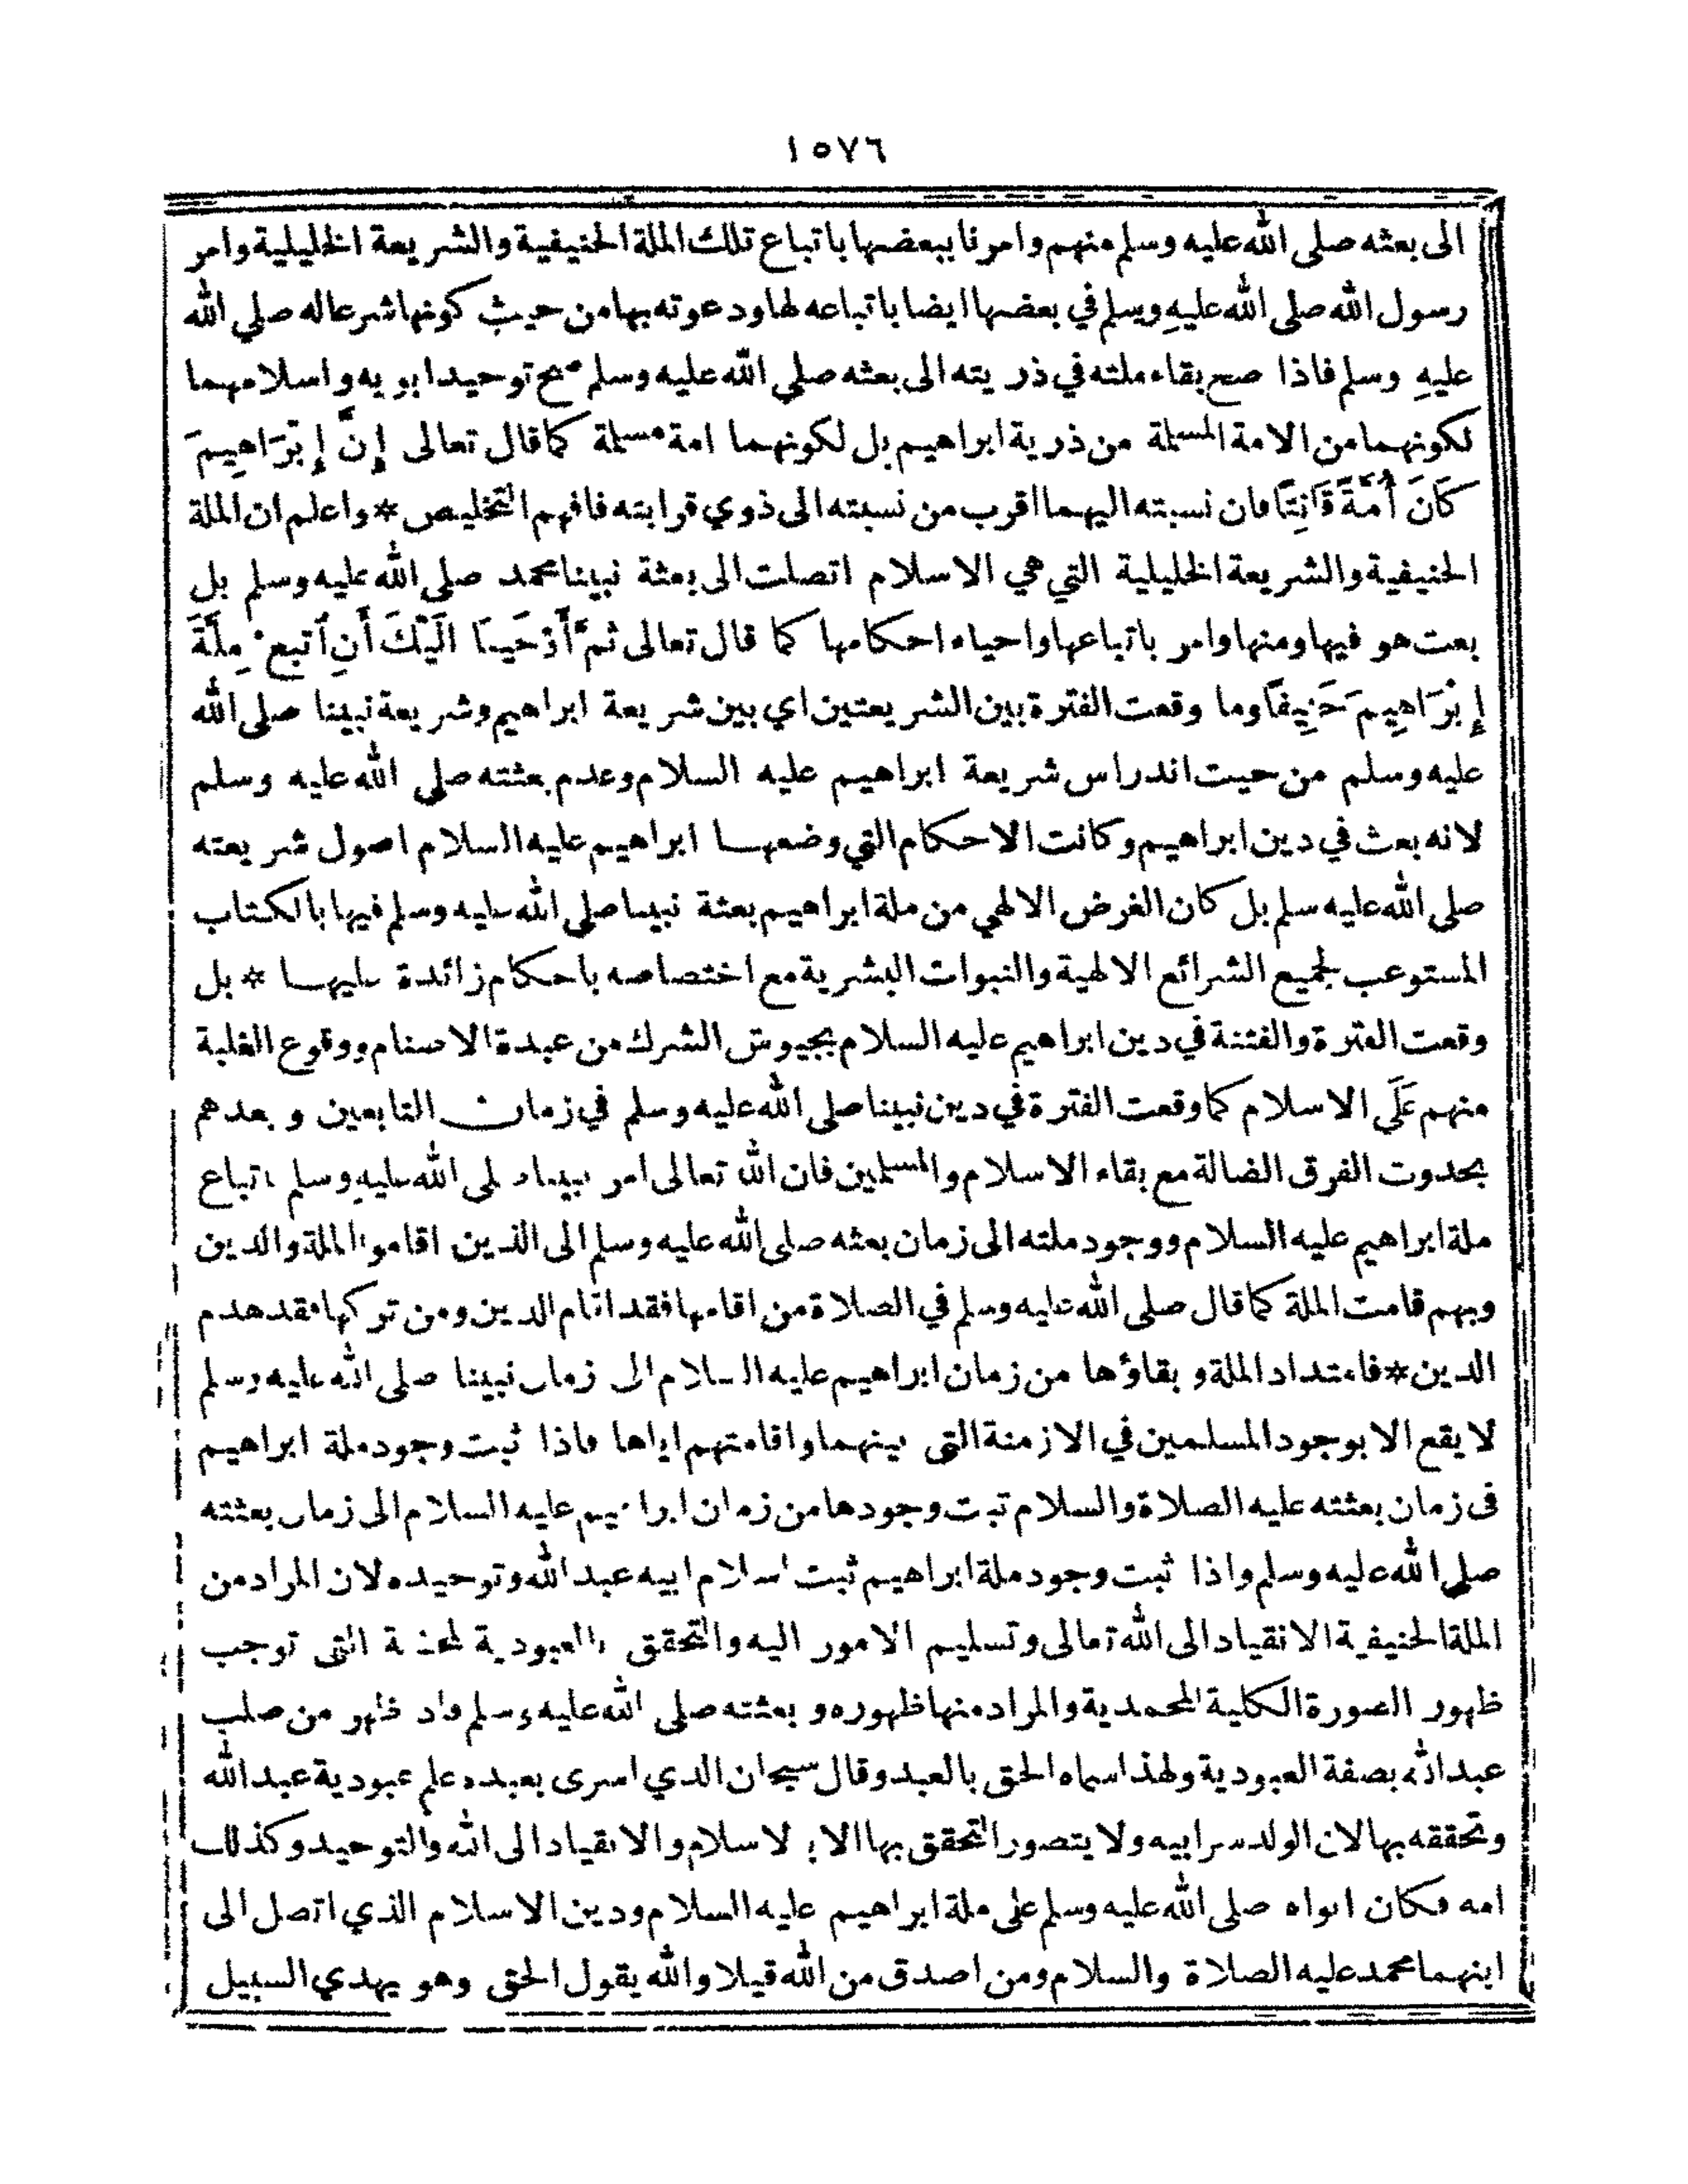 ١٥٧٦
الى بعثه صلى الله عليه وسلم منهم وامرنا ببعضها باتباع تلك الملة الحنيفية والشريعة الخليلية وامر
رسول الله صلى الله عليهِ وسلم في بعضها ايضا باتباعه لها ودعوته بها من حيث كونها شرعا له صلي الله
عليهِ وسلم فاذا صح بقاء ملته في ذريته الى بعثه صلي الله عليه وسلم صح توحيد ابويه واسلامهما
لكونهما من الامة المسلمة من ذرية ابراهيم بل لكونهما امة مسلمة كما قال تعالى إِنَّ إِبْرَاهِيمَ
كَانَ أُمَّةً قَانِتًا فان نسبته اليهما اقرب من نسبته الى ذوي قرابته فافهم التخليص * واعلم ان الملة
الحنيفية والشريعة الخليلية التي هي الاسلام اتصلت الى بعثة نبينا محمد صلى الله عليه وسلم بل
بعت هو فيها ومنها وامر باتباعها واحياء احكامها كما قال تعالى ثُمَّ أَوْحَينَا الَيْكَ أَنِ ٱتبع مِلَّةَ
إِبْرَاهِيمَ حَنِيفًا وما وقعت الفترة بين الشريعتين اي بين شريعة ابراهيم وشريعة نبينا صلى الله
عليه وسلم من حيت اندراس شريعة ابراهيم عليه السلام وعدم بعثته صلي الله عليه وسلم
لانه بعث في دين ابراهيم وكانت الاحكام التي وضعها ابراهيم عليه السلام اصول شريعته
صلى الله عليه سلم بل كان الغرض الالهي من ملة ابراهيم بعثة نبينا صلى الله عليه وسلم فيها بالكتاب
المستوعب لجميع الشرائع الالهية والنبوات البشرية مع اختصاصه باحكام زائدة عليها * بل
وقعت الفترة والفتنة في دين ابراهيم عليه السلام بجيوش الشرك من عبدة الاصنام ووقوع الغلبة
منهم عَلَى الاسلام كما وقعت الفترة في دين نبينا صلى الله عليه وسلم في زمان التابعين وبعدهم
بحدوت الفرق الضالة مع بقاء الاسلام والمسلمين فان الله تعالى امر نبينا صلى الله عليهِ وسلم باتباع
ملة ابراهيم عليه السلام ووجود ملته الى زمان بعثه صلى الله عليه وسلم الى الذين اقاموا الملة والدين
وبهم قامت الملة كما قال صلى الله عليه وسلم في الصلاة من اقامها فقد اقام الدين ومن تركها فقد هدم
الدين * فامتداد الملة وبقاؤها من زمان ابراهيم عليه السلام الى زمان نبينا صلى الله عليه وسلم
لا يقع الا بوجود المسلمين في الازمنة التي بينهما واقامتهم اياها فاذا ثبت وجود ملة ابراهيم
فى زمان بعثته عليه الصلاة والسلام تبت وجودها من زمان ابراهيم عليه السلام الى زمان بعثته
صلى الله عليه وسلم واذا ثبت وجود ملة ابراهيم ثبت اسلام ابيه عبد الله وتوحيده لان المراد من
الملة الحنيفية الانقياد الى الله تعالى وتسليم الامور اليه والتحقق بالعبودية المحضة التى توجب
ظهور الصورة الكلية المحمدية والمراد منها ظهوره وبعثته صلى الله عليه وسلم واد ظهر من صلب
عبد الله بصفة العبودية ولهذا سماه الحق بالعبد وقال سبحان الدي اسرى بعبده علم عبودية عبد الله
وتحققه بها لان الولد سر ابيه ولا يتصور التحقق بها الا بالاسلام والانقياد الى الله والتوحيد وكذلك
امه فكان ابواه صلى الله عليه وسلم على ملة ابراهيم عليه السلام ودين الاسلام الذي اتصل الى
ابنهما محمد عليه الصلاة والسلام ومن اصدق من الله قيلا والله يقول الحق وهو يهدي السبيل